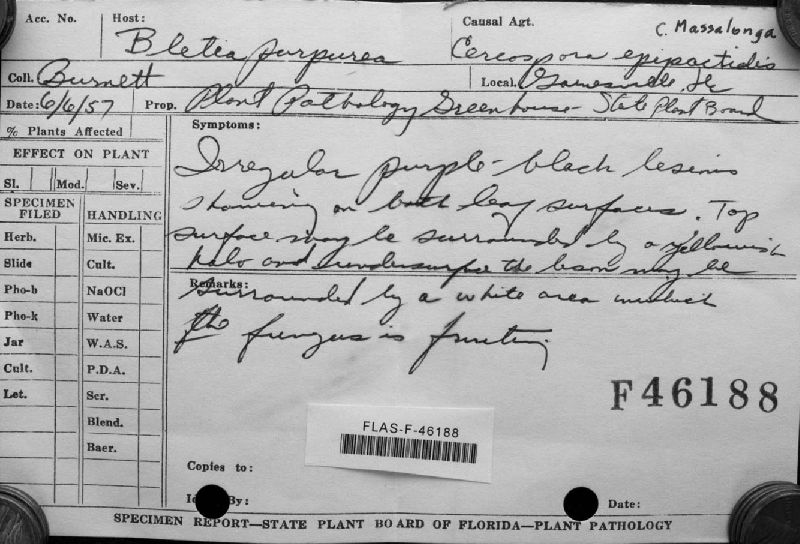 Acc. No. Host: Bletia purpurea Causal Agt. C. Massalonga
Cercospora epipactidis
Coll. Burnett Local. Gainesville, Fla
Date: 6/6/57 Prop. Plant Pathology Greenhouse - State Plant Board
% Plants Affected
EFFECT ON PLANT
Sl. Mod. Sev.
SPECIMEN FILED HANDLING
Herb. Mic. Ex.
Slide Cult.
Pho-b NaOCl
Pho-k Water
Jar W.A.S.
Cult. P.D.A.
Let. Scr.
Blend.
Baer.
Symptoms:
Irregular purple-black lesions
showing on both leaf surfaces. Top
surface may be surrounded by a yellowish
halo and undersurface the lesion may be
Remarks:
surrounded by a white area in which
the fungus is fruiting
F46188
FLAS-F-46188
Copies to:
By: Date:
SPECIMEN REPORT—STATE PLANT BOARD OF FLORIDA—PLANT PATHOLOGY